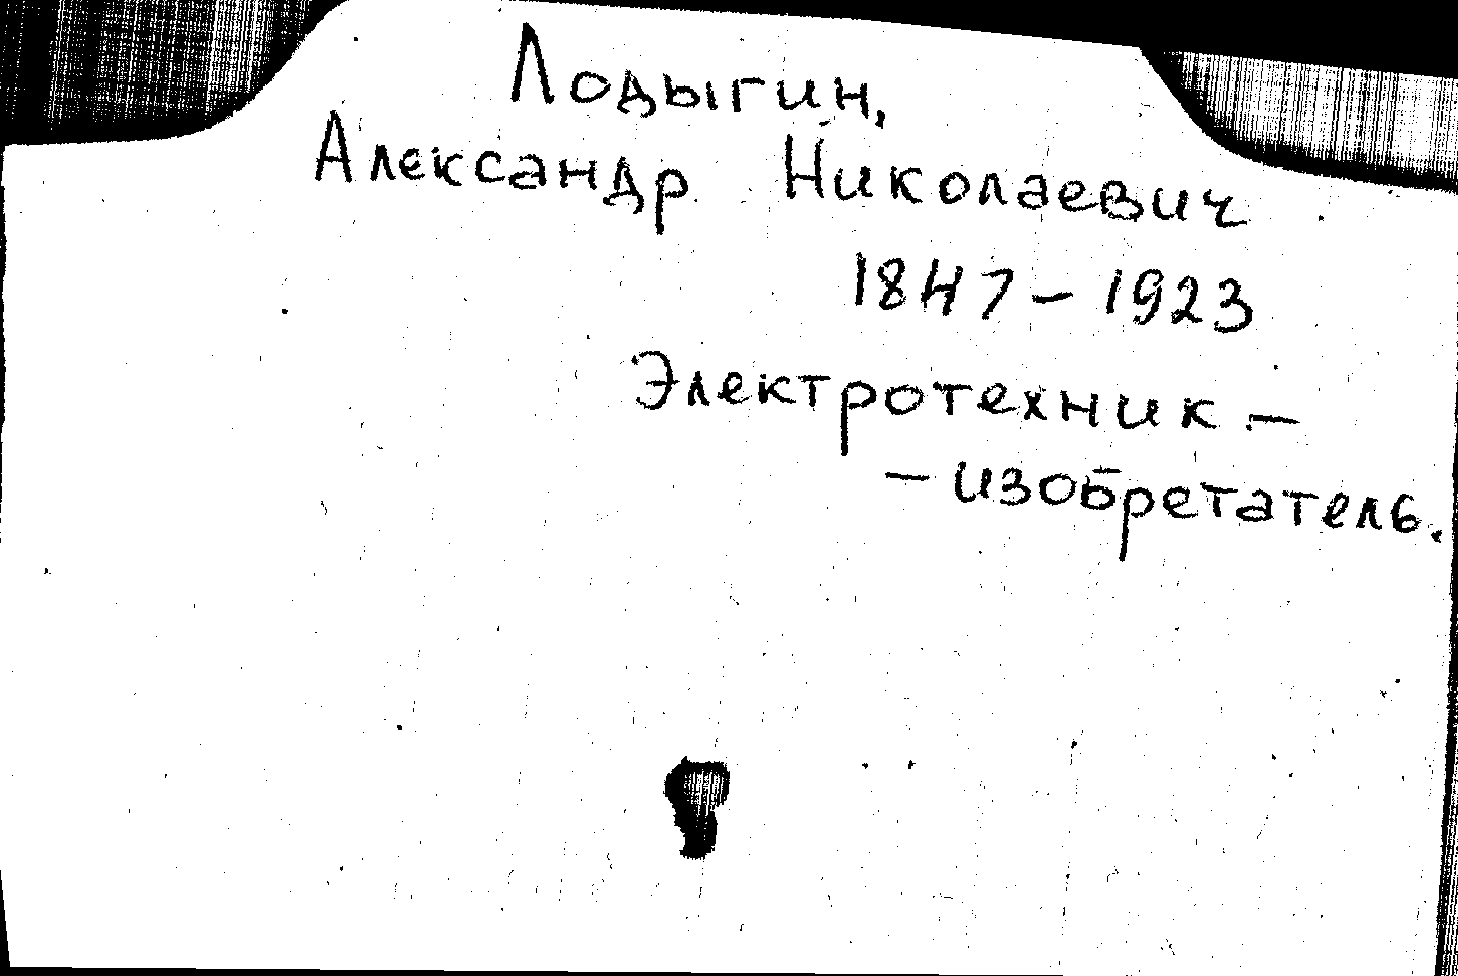 Лодыгин,
Александр Николаевич
1847-1923
Электротехник -
- изобретатель.